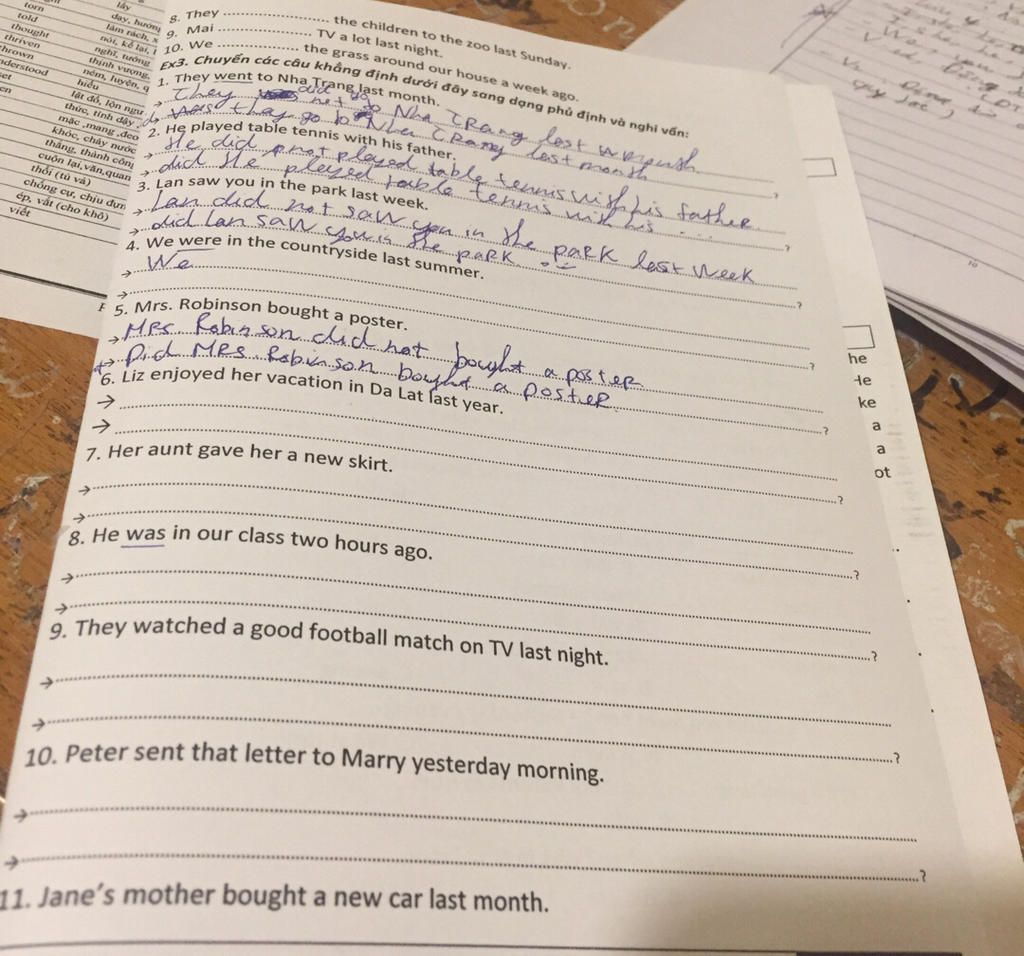 torn
told
thought
thriven
hrown
nderstood
set
en
lấy
day, hướng
làm rách, x
nói, kể lại,
nghĩ, tưởng
thịnh vượng,
ném, luyện, q
hiểu
lật đổ, lộn ngư
thức, tỉnh dậy
mặc ,mang ,đeo
khóc, chảy nước
thắng, thành côn
cuộn lại,văn,quan
thổi (tù và)
chống cự, chịu đựn
ép, vắt (cho khô)
viết
8. They .............................. the children to the zoo last Sunday.
9. Mai .............................. TV a lot last night.
10. We .............................. the grass around our house a week ago.
Ex3. Chuyển các câu khẳng định dưới đây sang dạng phủ định và nghi vấn:
1. They went to Nha Trang last month.
→ They did not go Nha TRang last month
→ did they go to Nha TRang last month ?
2. He played table tennis with his father.
→ He did not played table tennis wish his father.
→ did He played table tennis with his ... ?
3. Lan saw you in the park last week.
→ Lan did not saw you in the paRK last week
→ did Lan saw you in the paRK ... ?
4. We were in the countryside last summer.
→ We
→ ?
5. Mrs. Robinson bought a poster.
→ MRs. Robinson did not bought a posteR
→ Did MRs Robinson bought a posteR. ?
6. Liz enjoyed her vacation in Da Lat last year.
→
→ ?
7. Her aunt gave her a new skirt.
→
→ ?
8. He was in our class two hours ago.
→
→ ?
9. They watched a good football match on TV last night.
→
→ ?
10. Peter sent that letter to Marry yesterday morning.
→
→ ?
11. Jane's mother bought a new car last month.
he
He
ke
a
a
ot
10